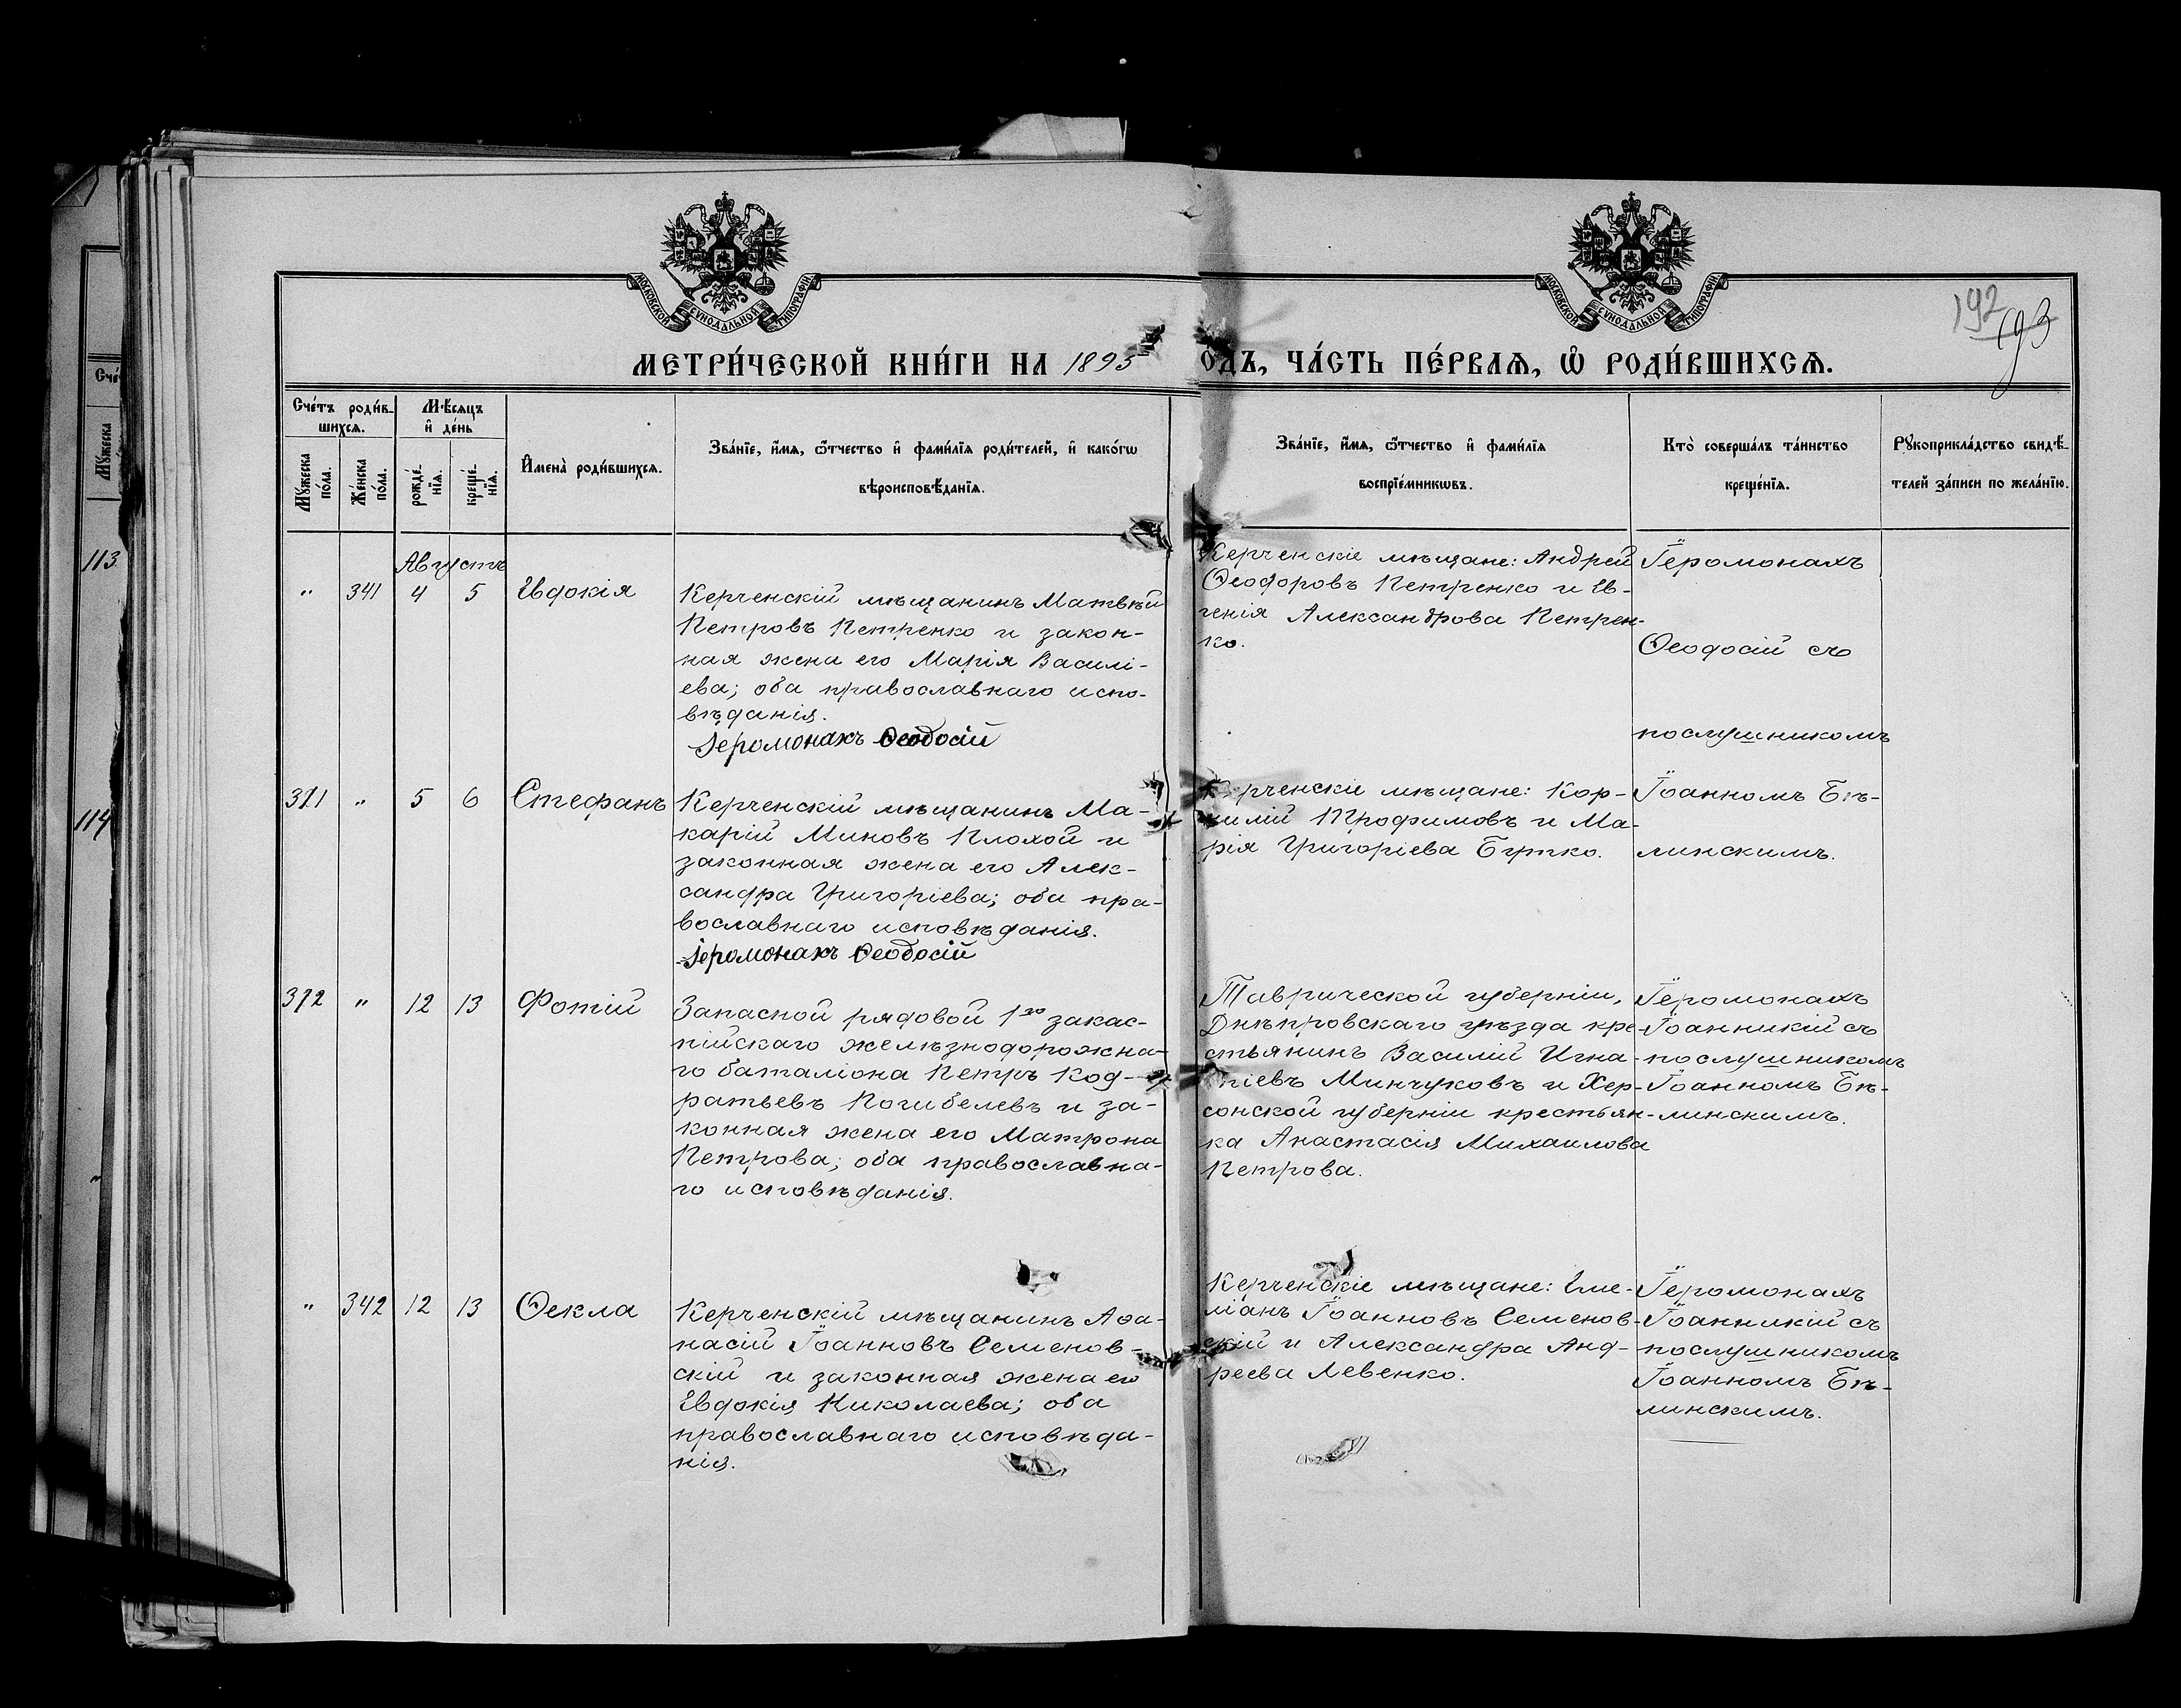 МОСКОВСКОЙ СѴНОДАЛЬНОЙ ТИПОГРАФІИ
МОСКОВСКОЙ СѴНОДАЛЬНОЙ ТИПОГРАФІИ
192
193
МЕТРИ́ЧЕСКОЙ КНИ́ГИ НА 1895 ОДЪ, ЧА́СТЬ ПЕ́РВАѦ, Ѡ҆ РОДИ́ВШИХСѦ.
Сче́тъ роди́в-
шихсѧ.
Мꙋ́жеска по́ла.
Же́нска по́ла.
Мѣ́сѧцъ
и҆ де́нь
рожде́-
нїѧ.
креще́-
нїѧ.
И҆мена̀ роди́вшихсѧ.
Зва́нїе, и҆́мѧ, ѻ҆́тчество и҆ фами́лїѧ роди́телей, и҆ како́гѡ
вѣроисповѣ́данїѧ.
Зва́нїе, и҆́мѧ, ѻ҆́тчество и҆ фами́лїѧ
воспрїе́мникѡвъ.
Кто̀ соверша́лъ та́инство
креще́нїѧ.
Рꙋкоприкла́дство свидѣ́-
телей за́писи по жела́нїю.
113
114
Августъ
" 341 4 5 Евдокія
Керченскій мѣщанинъ Матвѣй
Петровъ Петренко и закон-
ная жена его Марія Василі-
ева; оба православнаго испо-
вѣданія.
Іеромонахъ Ѳеодосій
Керченскіе мѣщане: Андрей
Ѳеодоровъ Петренко и Ев-
генія Александрова Петрен-
ко.
Іеромонахъ
Ѳеодосій съ
послушникомъ
Іоанномъ Бѣ-
линскимъ.
371 " 5 6 Стефанъ
Керченскій мѣщанинъ Ма-
карій Миновъ Плохой и
законная жена его Алек-
сандра Григоріева; оба пра-
вославнаго исповѣданія.
Іеромонахъ Ѳеодосій
Керченскіе мѣщане: Кор-
нилій Трофимовъ и Ма-
рія Григоріева Бутко.
372 " 12 13 Фотій
Запасной рядовой 1го закас-
пійскаго желѣзнодорожна-
го баталіона Петръ Код-
ратьевъ Погибелевъ и за-
конная жена его Матрона
Петрова; оба православна-
го исповѣданія.
Таврической губерніи,
Днѣпровскаго уѣзда кре-
стьянинъ Василій Игна-
тіевъ Минчуковъ и Хер-
сонской губерніи крестьян-
ка Анастасія Михаилова
Петрова.
Іеромонахъ
Іоанникій съ
послушникомъ
Іоанномъ Бѣ-
линскимъ.
" 342 12 13 Ѳекла
Керченскій мѣщанинъ Аѳа-
насій Іоанновъ Семенов-
скій и законная жена его
Евдокія Николаева; оба
православнаго исповѣда-
нія.
Керченскіе мѣщане: Еме-
ліанъ Іоанновъ Семенов-
скій и Александра Анд-
реева Левенко.
Іеромонахъ
Іоанникій съ
послушникомъ
Іоанномъ Бѣ-
линскимъ.